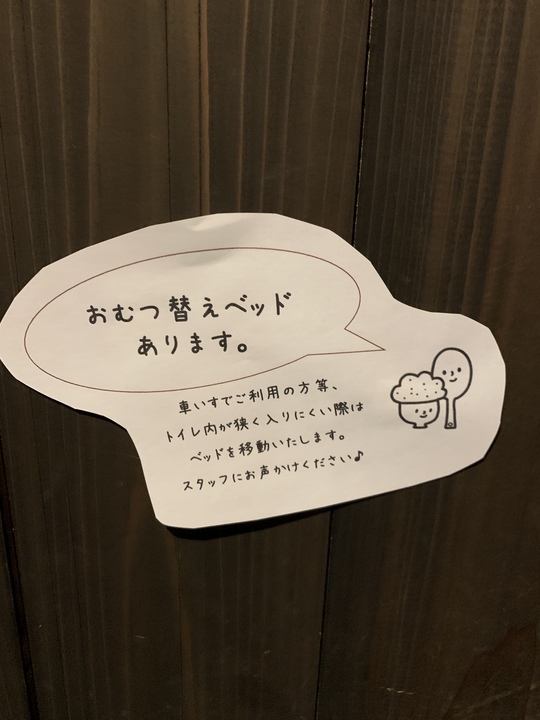 おむつ替えベッド
あります。
車いすでご利用の方等、
トイレ内が狭く入りにくい際は
ベッドを移動いたします。
スタッフにお声かけください♪